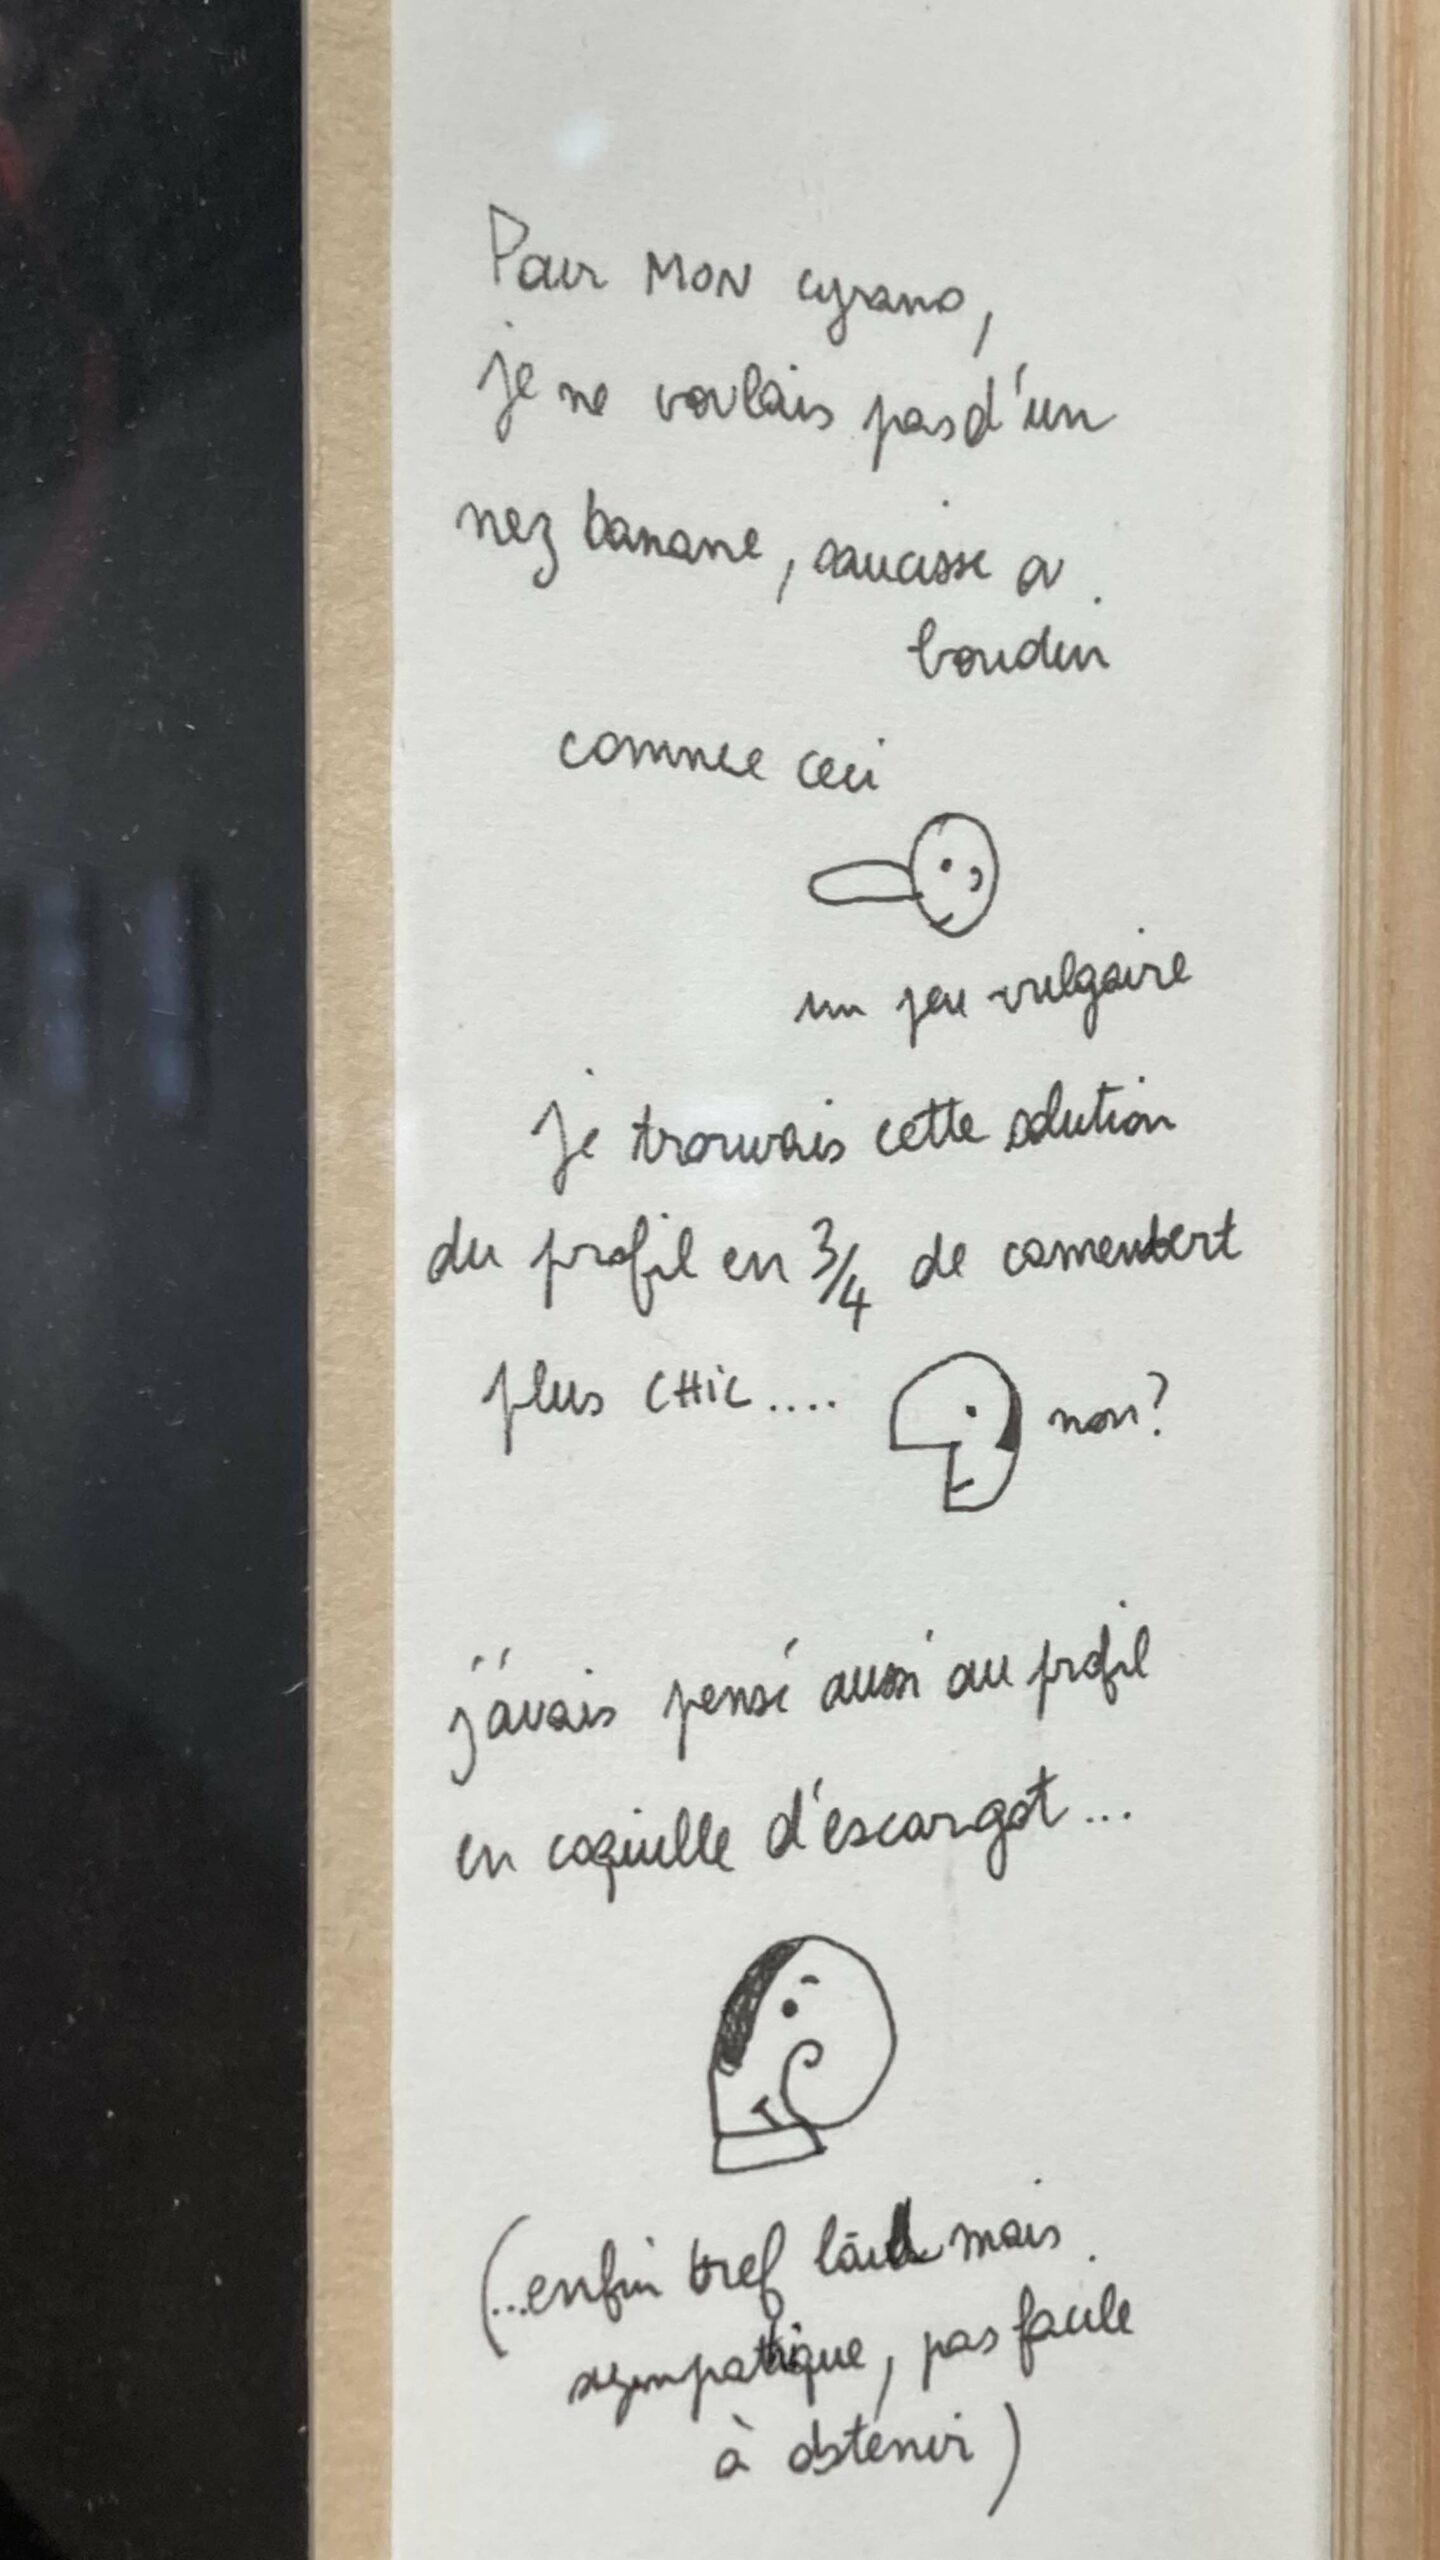 Pour MON cyrano,
je ne voulais pas d'un
nez banane, saucisse ou
boudin
comme ceci
un peu vulgaire
je trouvais cette solution
du profil en 3/4 de camembert
plus CHIC.... non?
j'avais pensé aussi au profil
en coquille d'escargot...
(...enfin bref laid mais
sympathique, pas facile
à obtenir)